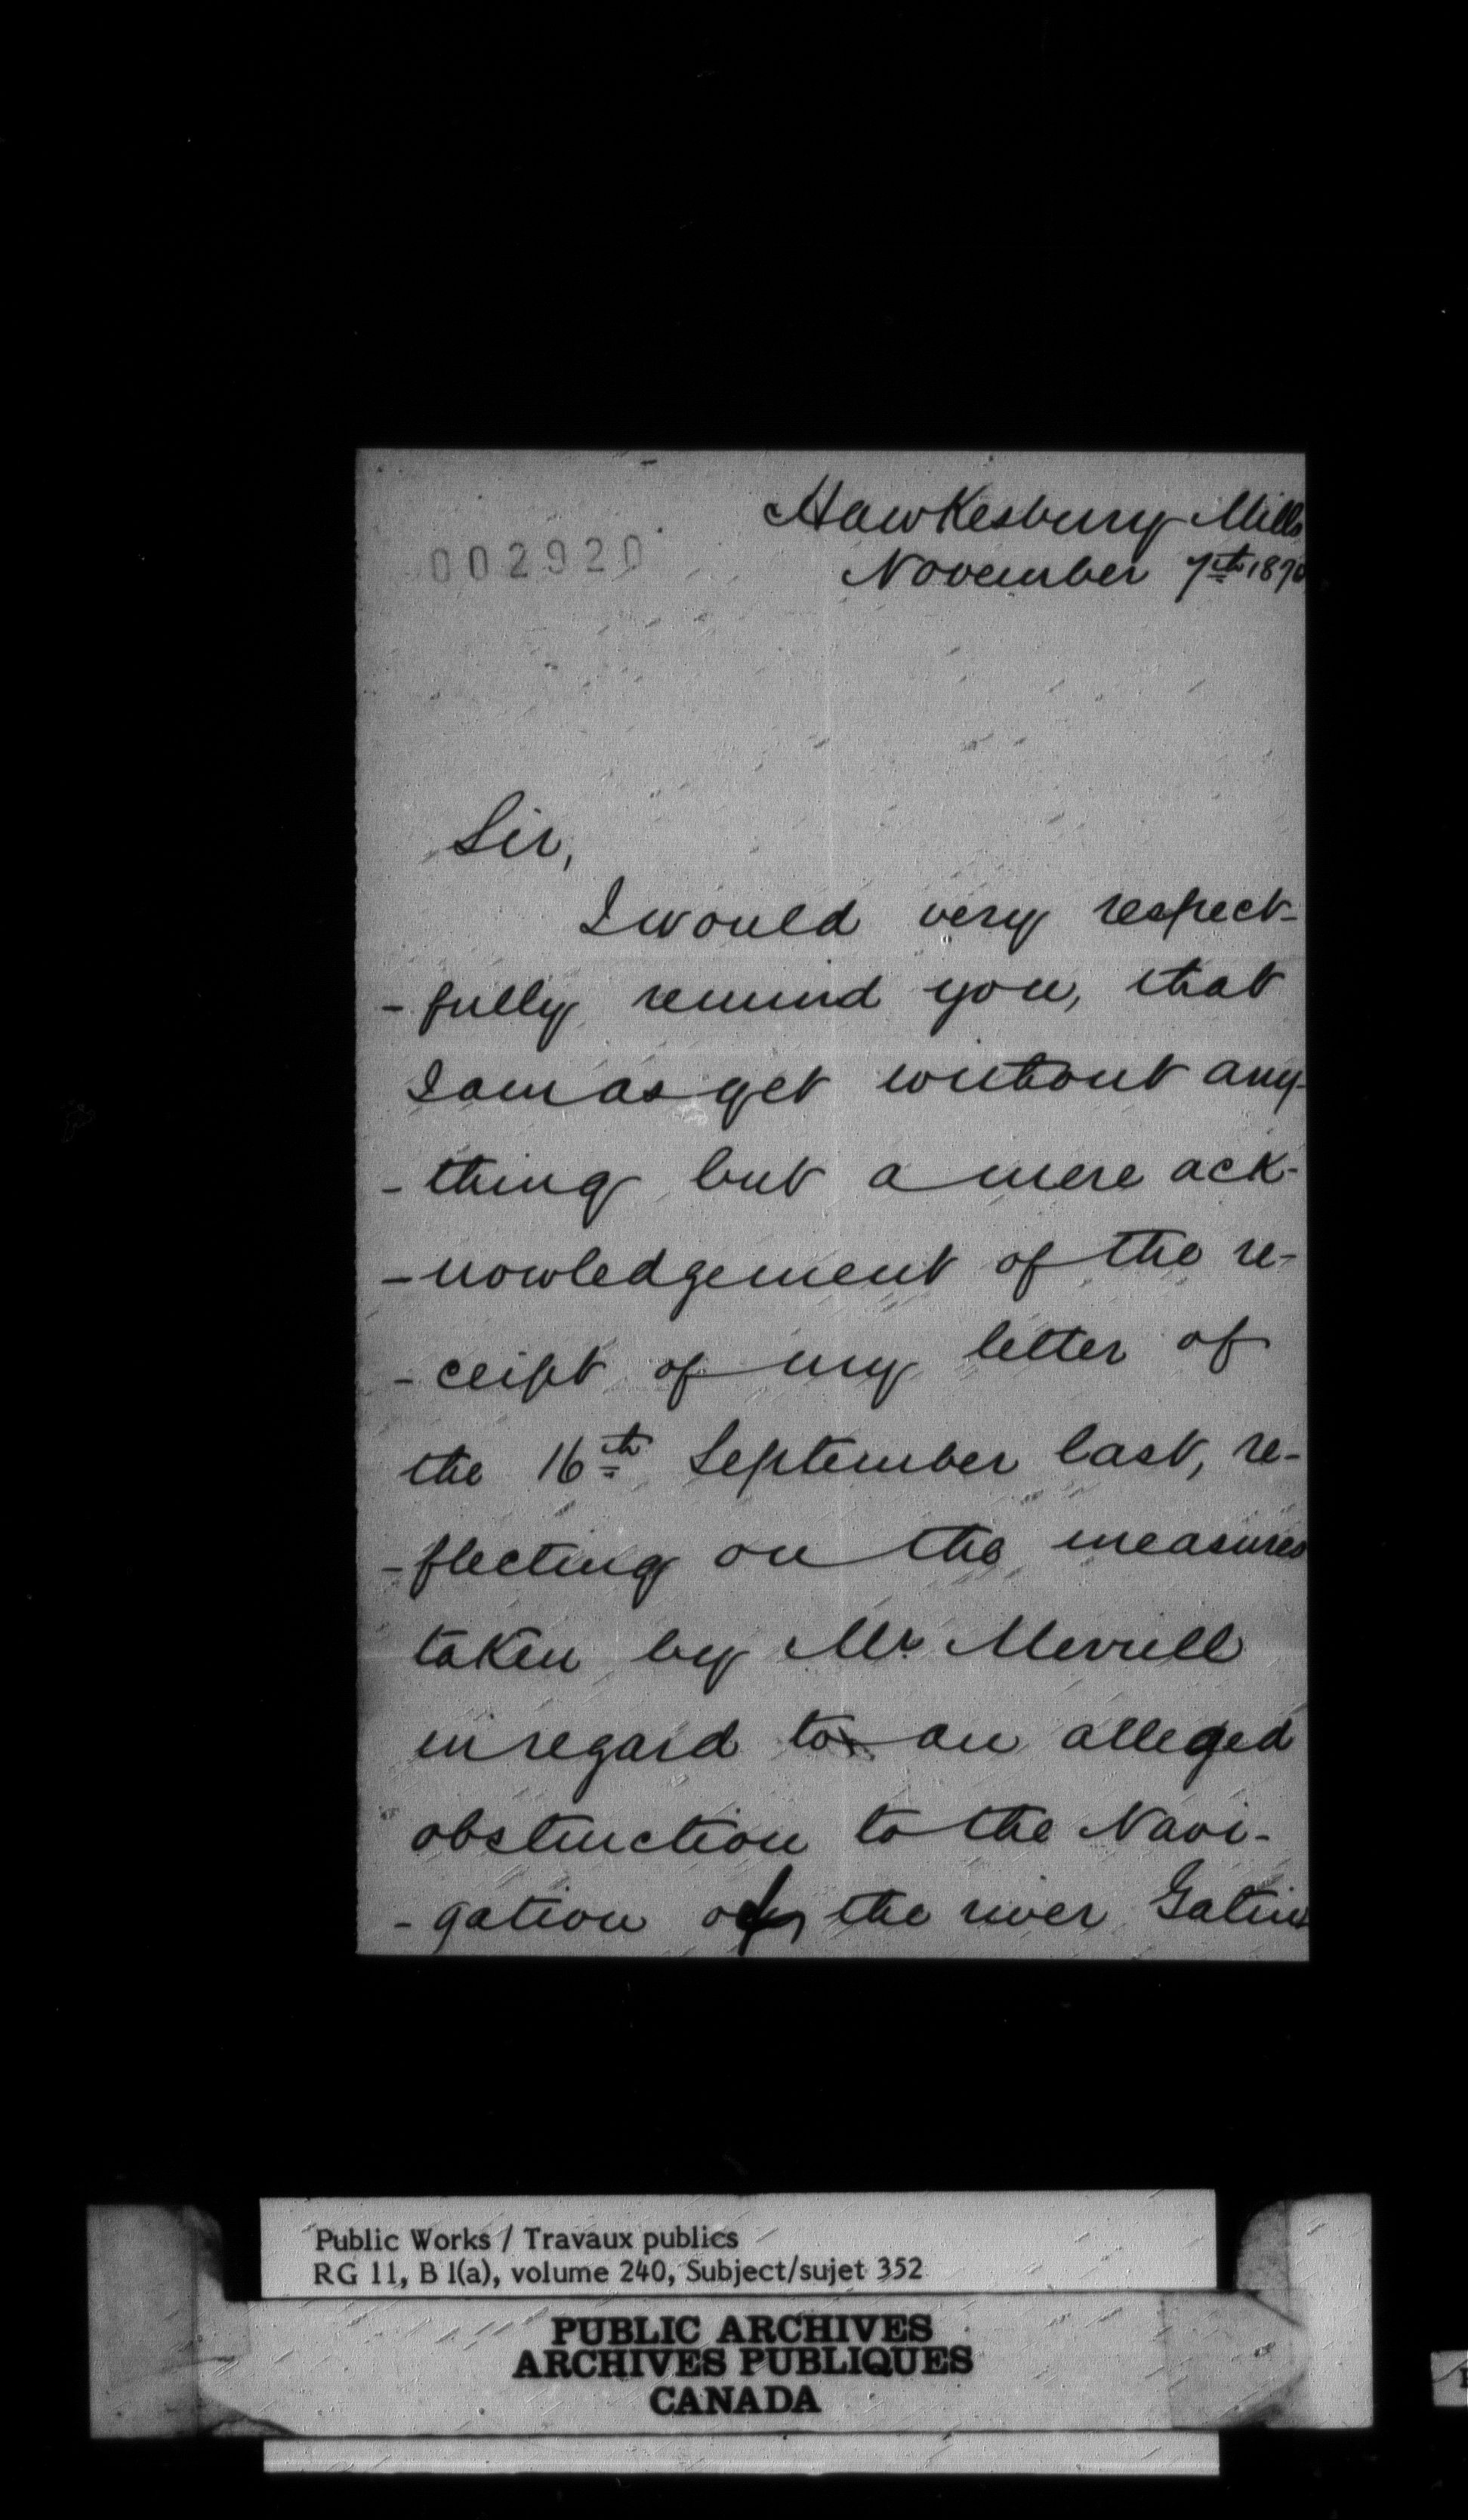 Hawkesbury Mills
002920
November 7th 1870
Sir,
I would very respect-
-fully remind you, that
I am as yet without any-
-thing but a mere ack-
-nowledgement of the re-
-ceipt of my letter of
the 16th September last, re-
-flecting on the measures
taken by Mr Merrill
in regard to an alleged
obstruction to the Navi-
-gation of the river Gatin
Public Works / Travaux publics
RG 11, B 1(a), volume 240, Subject/sujet 352
PUBLIC ARCHIVES
ARCHIVES PUBLIQUES
CANADA